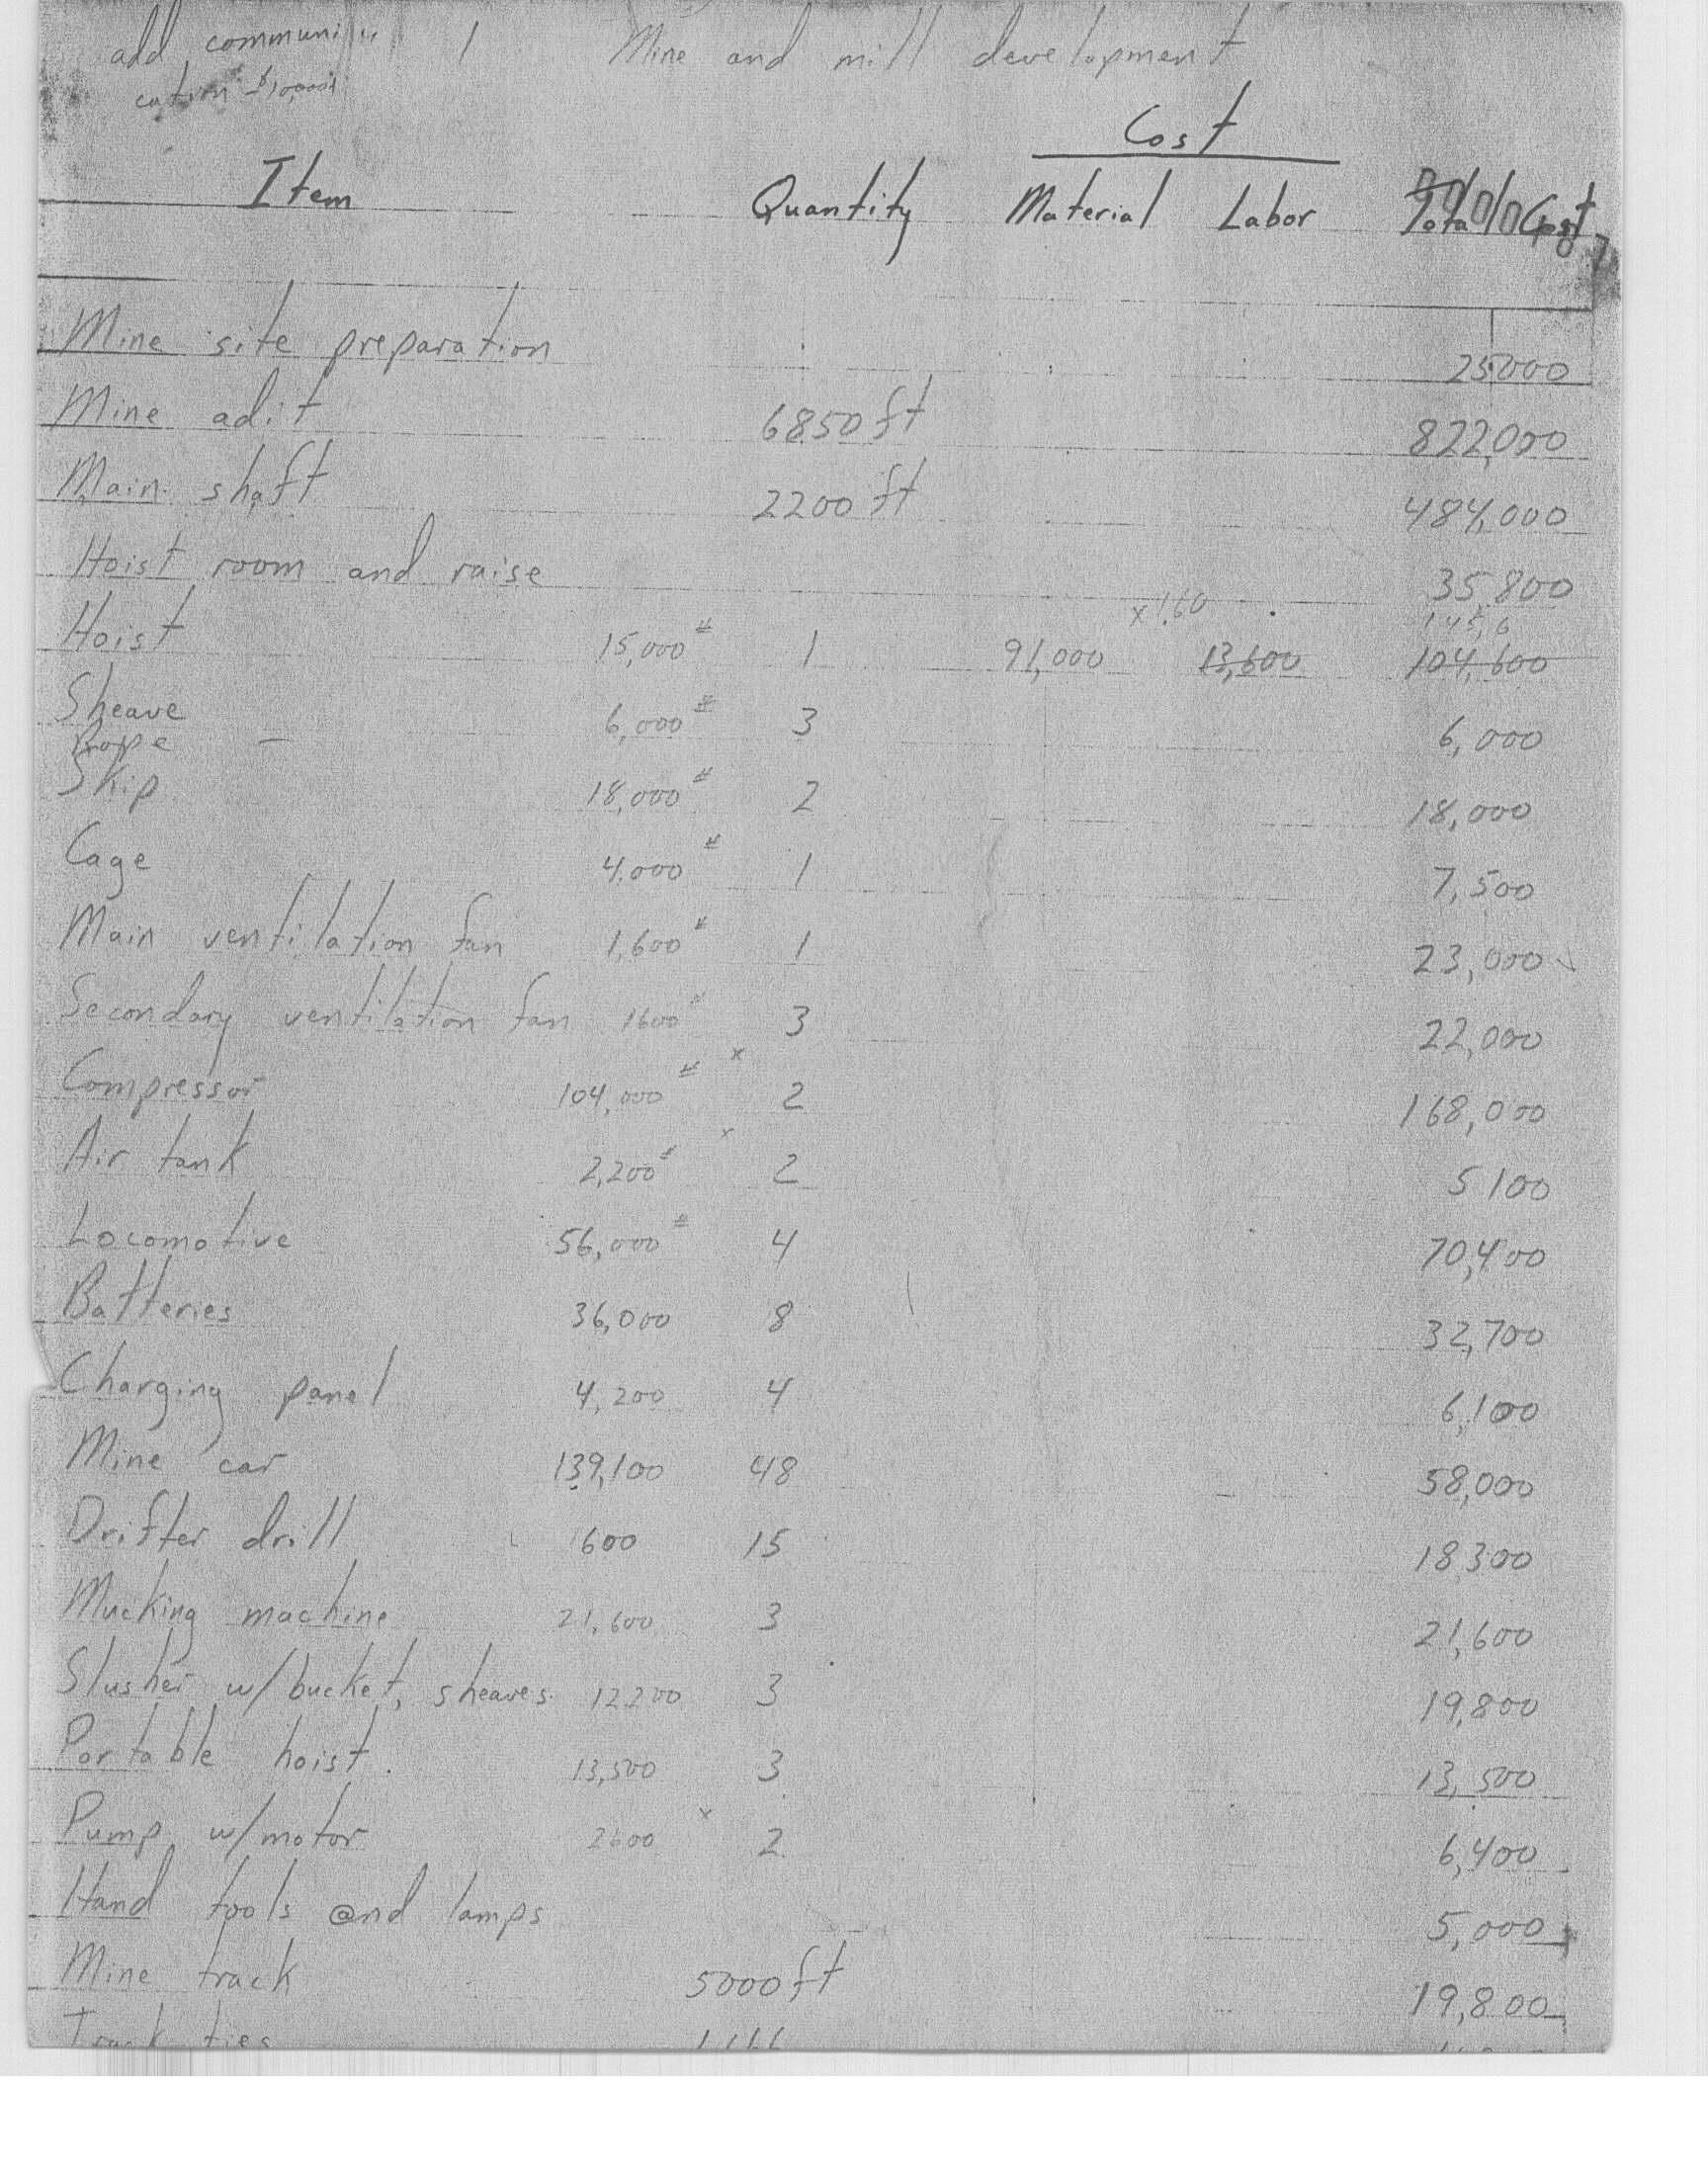 add communi
cation $10,000
1 Mine and mill development
Cost
Item Quantity Material Labor Total Cost
Mine site preparation 25000
Mine adit 6850 ft 822,000
Main shaft 2200 ft 484,000
Hoist room and raise 35,800
x 1.60 145,6
Hoist 15,000# 1 91,000 13,600 104,600
Sheave 6,000# 3 6,000
Rope —
Skip 18,000# 2 18,000
Cage 4,000# 1 7,500
Main ventilation fan 1,600# 1 23,000
Secondary ventilation fan 1600# 3 22,000
Compressor 104,000# x 2 168,000
Air tank 2,200# x 2 5100
Locomotive 56,000# 4 70,400
Batteries 36,000 8 32,700
Charging panel 4,200 4 6,100
Mine car 139,100 48 58,000
Drifter drill 600 15 18300
Mucking machine 21,600 3 21,600
Slusher w/bucket, sheaves 12200 3 19,800
Portable hoist. 13,500 3 13,500
Pump w/motor 2600 x 2 6,400
Hand tools and lamps 5,000
Mine track 5000 ft 19,800
Track ties